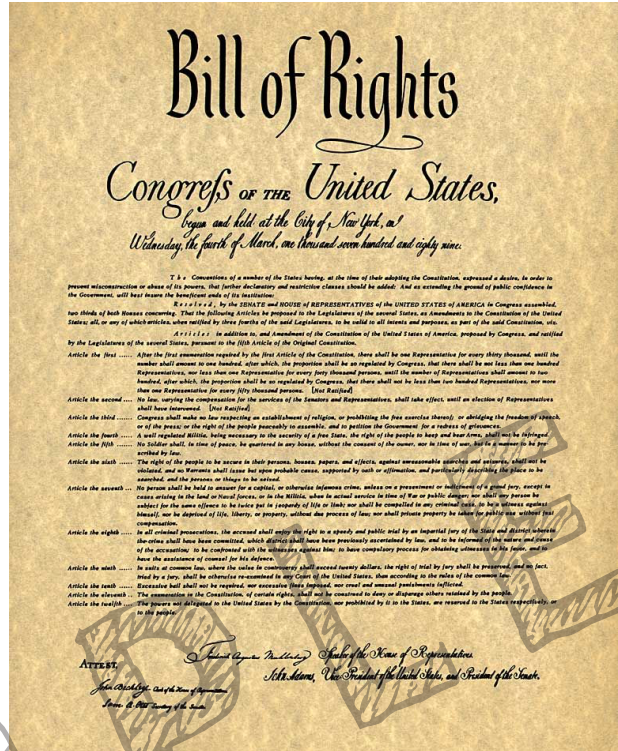 Bill of Rights
Congreſs OF THE United States,
begun and held at the City of New York, on
Wednesday, the fourth of March, one thousand seven hundred and eighty nine.
The Conventions of a number of the States having, at the time of their adopting the Constitution, expressed a desire, in order to
prevent misconstruction or abuse of its powers, that further declaratory and restriction classes should be added: And as extending the ground of public confidence in
the Government, will best insure the beneficent ends of its institution:
Resolved, by the SENATE and HOUSE of REPRESENTATIVES of the UNITED STATES of AMERICA in Congress assembled,
two thirds of both Houses concurring. That the following Articles be proposed to the Legislatures of the several States, as Amendments to the Constitution of the United
States; all, or any of which articles, when ratified by three fourths of the said Legislatures, to be valid to all intents and purposes, as part of the said Constitution, viz.
Articles in addition to, and Amendment of the Constitution of the United States of America, proposed by Congress, and ratified
by the Legislatures of the several States, pursuant to the fifth Article of the Original Constitution.
Article the first ...... After the first enumeration required by the first Article of the Constitution, there shall be one Representative for every thirty thousand, until the
number shall amount to one hundred, after which, the proportion shall be so regulated by Congress, that there shall be not less than one hundred
Representatives, nor less than one Representative for every forty thousand persons, until the number of Representatives shall amount to two
hundred, after which, the proportion shall be so regulated by Congress, that there shall not be less than two hundred Representatives, nor more
than one Representative for every fifty thousand persons. [Not Ratified]
Article the second .... No law, varying the compensation for the services of the Senators and Representatives, shall take effect, until an election of Representatives
shall have intervened. [Not Ratified]
Article the third ...... Congress shall make no law respecting an establishment of religion, or prohibiting the free exercise thereof; or abridging the freedom of speech,
or of the press; or the right of the people peaceably to assemble, and to petition the Government for a redress of grievances.
Article the fourth .... A well regulated Militia, being necessary to the security of a free State, the right of the people to keep and bear Arms, shall not be infringed.
Article the fifth ...... No Soldier shall, in time of peace, be quartered in any house, without the consent of the owner, nor in time of war, but in a manner to be pre-
scribed by law.
Article the sixth ...... The right of the people to be secure in their persons, houses, papers, and effects, against unreasonable searches and seizures, shall not be
violated, and no Warrants shall issue but upon probable cause, supported by oath or affirmation, and particularly describing the place to be
searched, and the persons or things to be seized.
Article the seventh ... No person shall be held to answer for a capital, or otherwise infamous crime, unless on a presentment or indictment of a grand jury, except in
cases arising in the land or Naval forces, or in the Militia, when in actual service in time of War or public danger; nor shall any person be
subject for the same offence to be twice put in jeopardy of life or limb; nor shall be compelled in any criminal case, to be a witness against
himself, nor be deprived of life, liberty, or property, without due process of law; nor shall private property be taken for public use without just
compensation.
Article the eighth .... In all criminal prosecutions, the accused shall enjoy the right to a speedy and public trial by an impartial jury of the State and district wherein
the crime shall have been committed, which district shall have been previously ascertained by law, and to be informed of the nature and cause
of the accusation; to be confronted with the witnesses against him; to have compulsory process for obtaining witnesses in his favor, and to
have the assistance of counsel for his defence.
Article the ninth ..... In suits at common law, where the value in controversy shall exceed twenty dollars, the right of trial by jury shall be preserved, and no fact,
tried by a jury, shall be otherwise re-examined in any Court of the United States, than according to the rules of the common law.
Article the tenth ...... Excessive bail shall not be required, nor excessive fines imposed, nor cruel and unusual punishments inflicted.
Article the eleventh .. The enumeration in the Constitution, of certain rights, shall not be construed to deny or disparage others retained by the people.
Article the twelfth .... The powers not delegated to the United States by the Constitution, nor prohibited by it to the States, are reserved to the States respectively, or
to the people.
Frederick Augustus Muhlenberg Speaker of the House of Representatives.
ATTEST,
John Adams, Vice President of the United States, and President of the Senate.
John Beckley, Clerk of the House of Representatives.
Sam. A. Otis Secretary of the Senate.